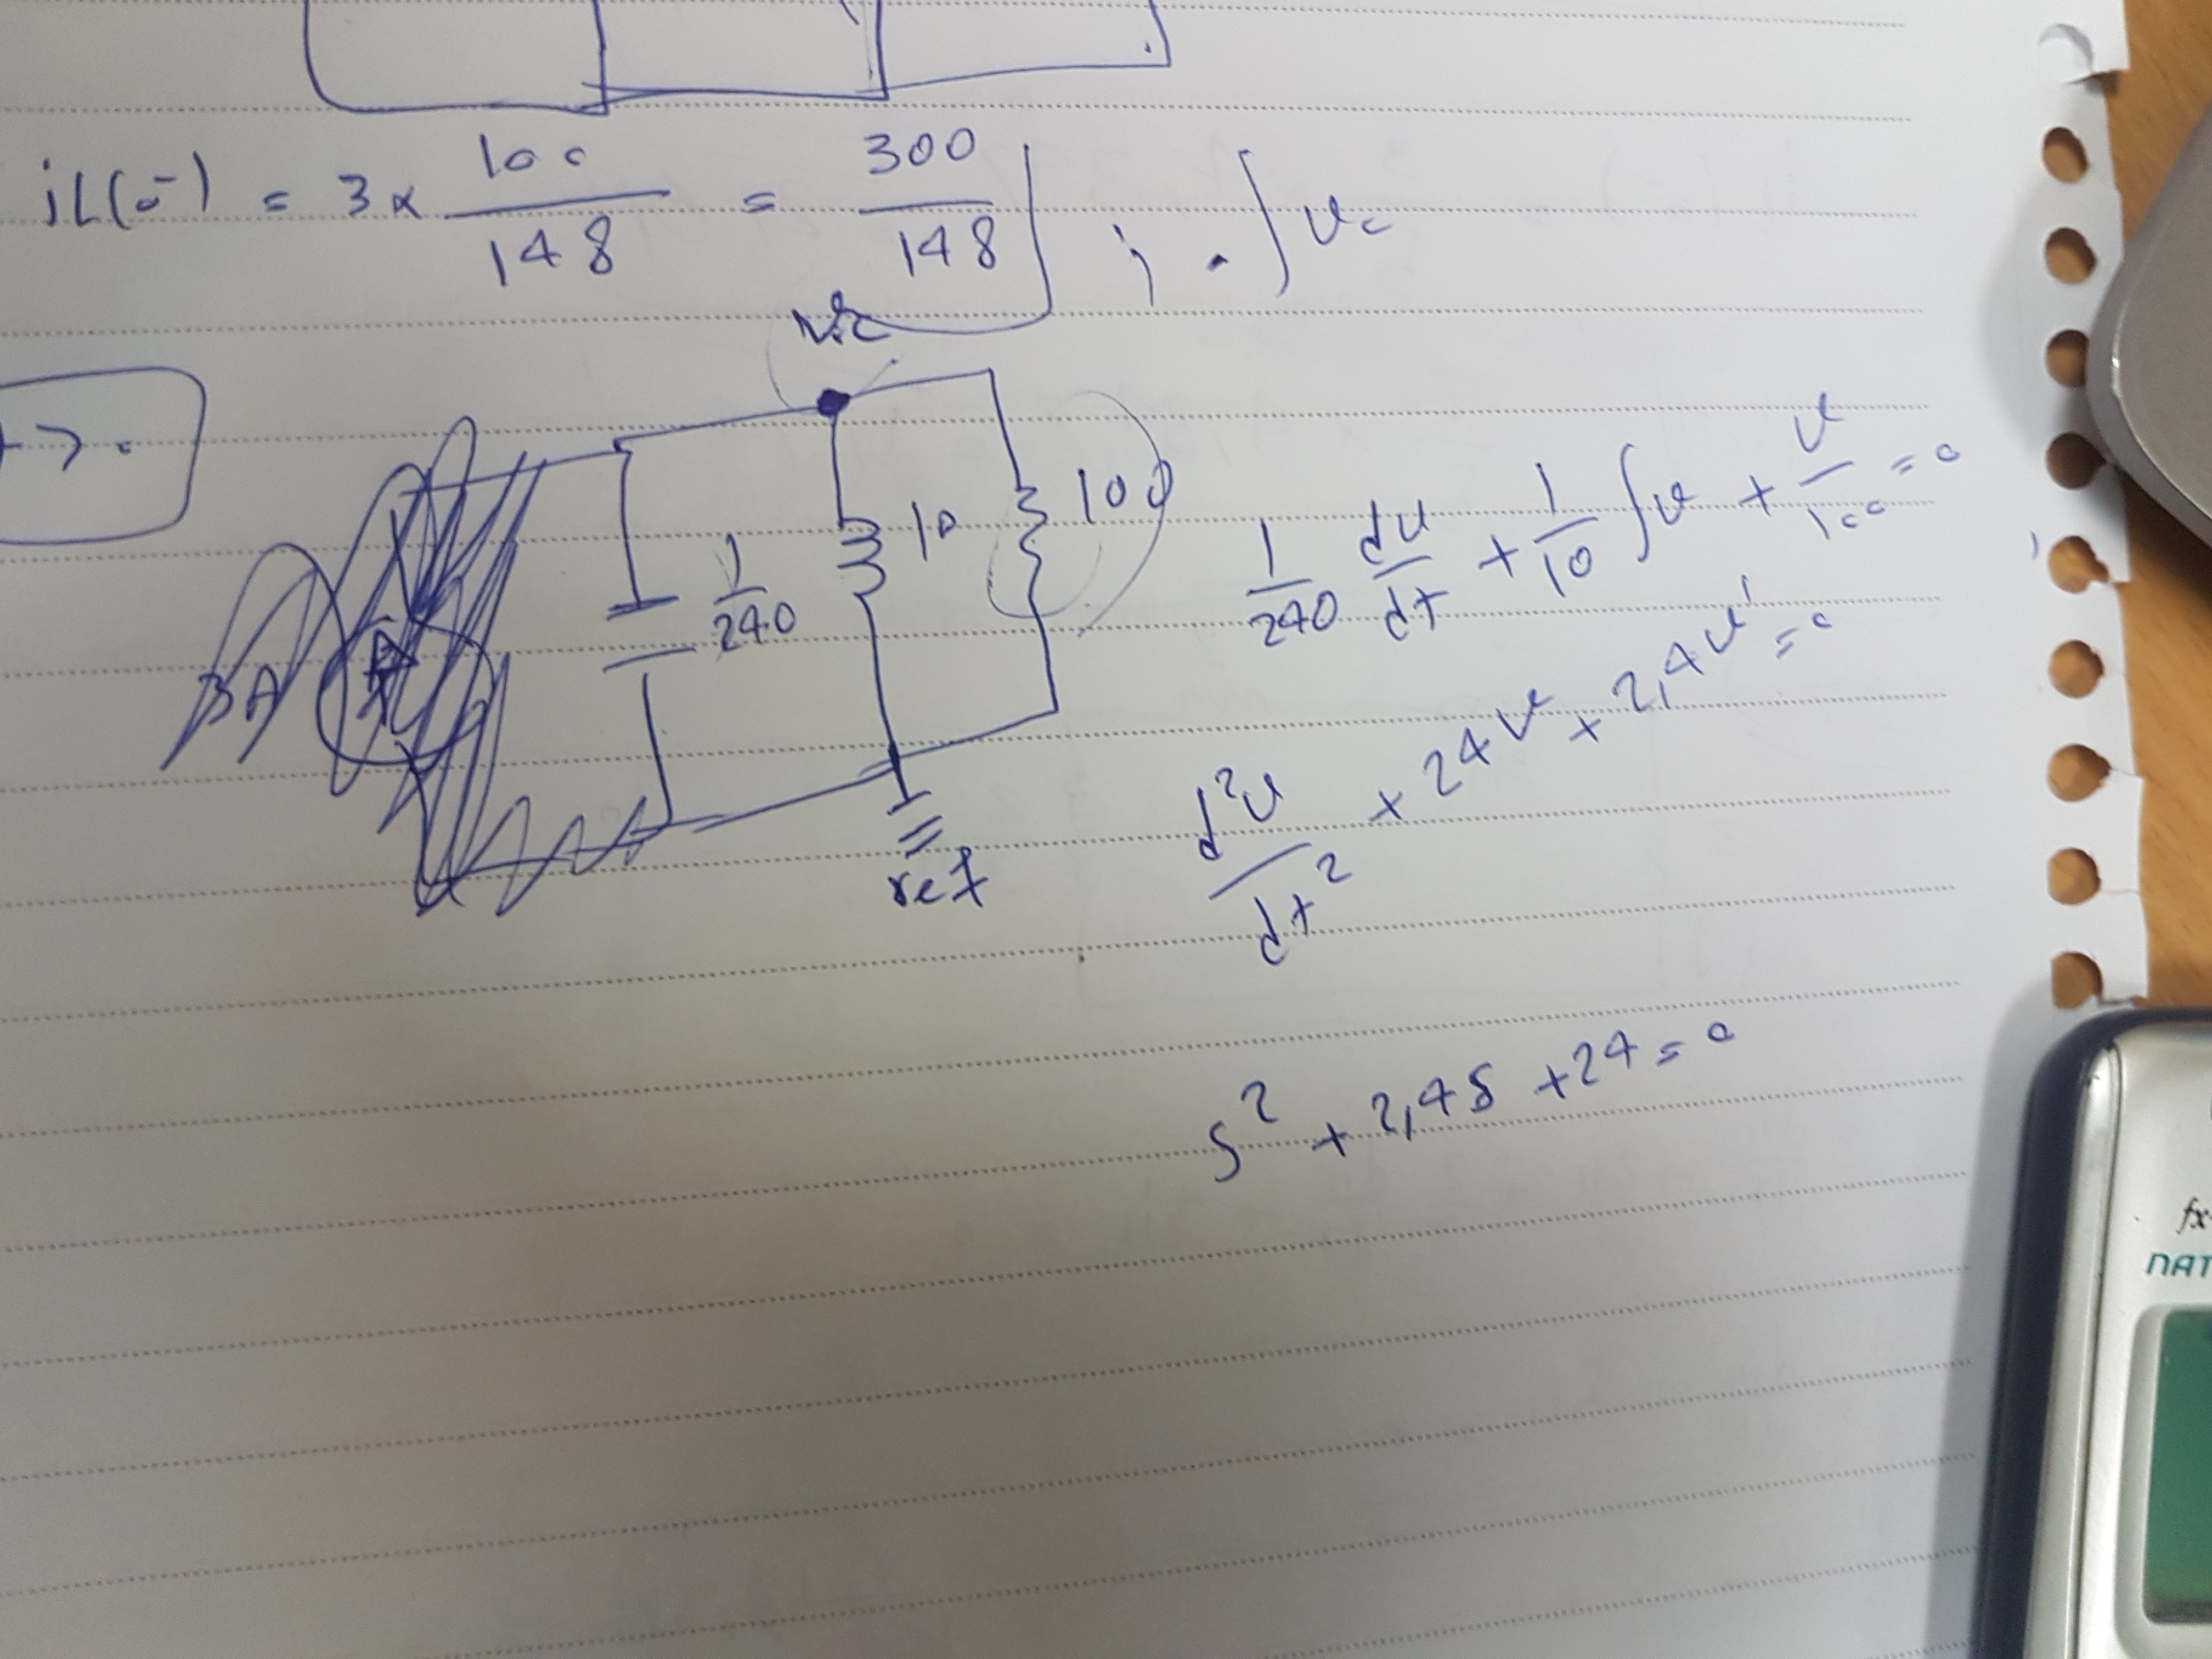 iL(0⁻) = 3 × 100/148 = 300/148 ; . ∫ vc
vc
t > 0
3A
1/240
10
100
ref
1/240 dv/dt + 1/10 ∫v + v/100 = 0
d²v/dt² + 24v + 2,4v' = 0
s² + 2,4s + 24 = 0
fx
NAT